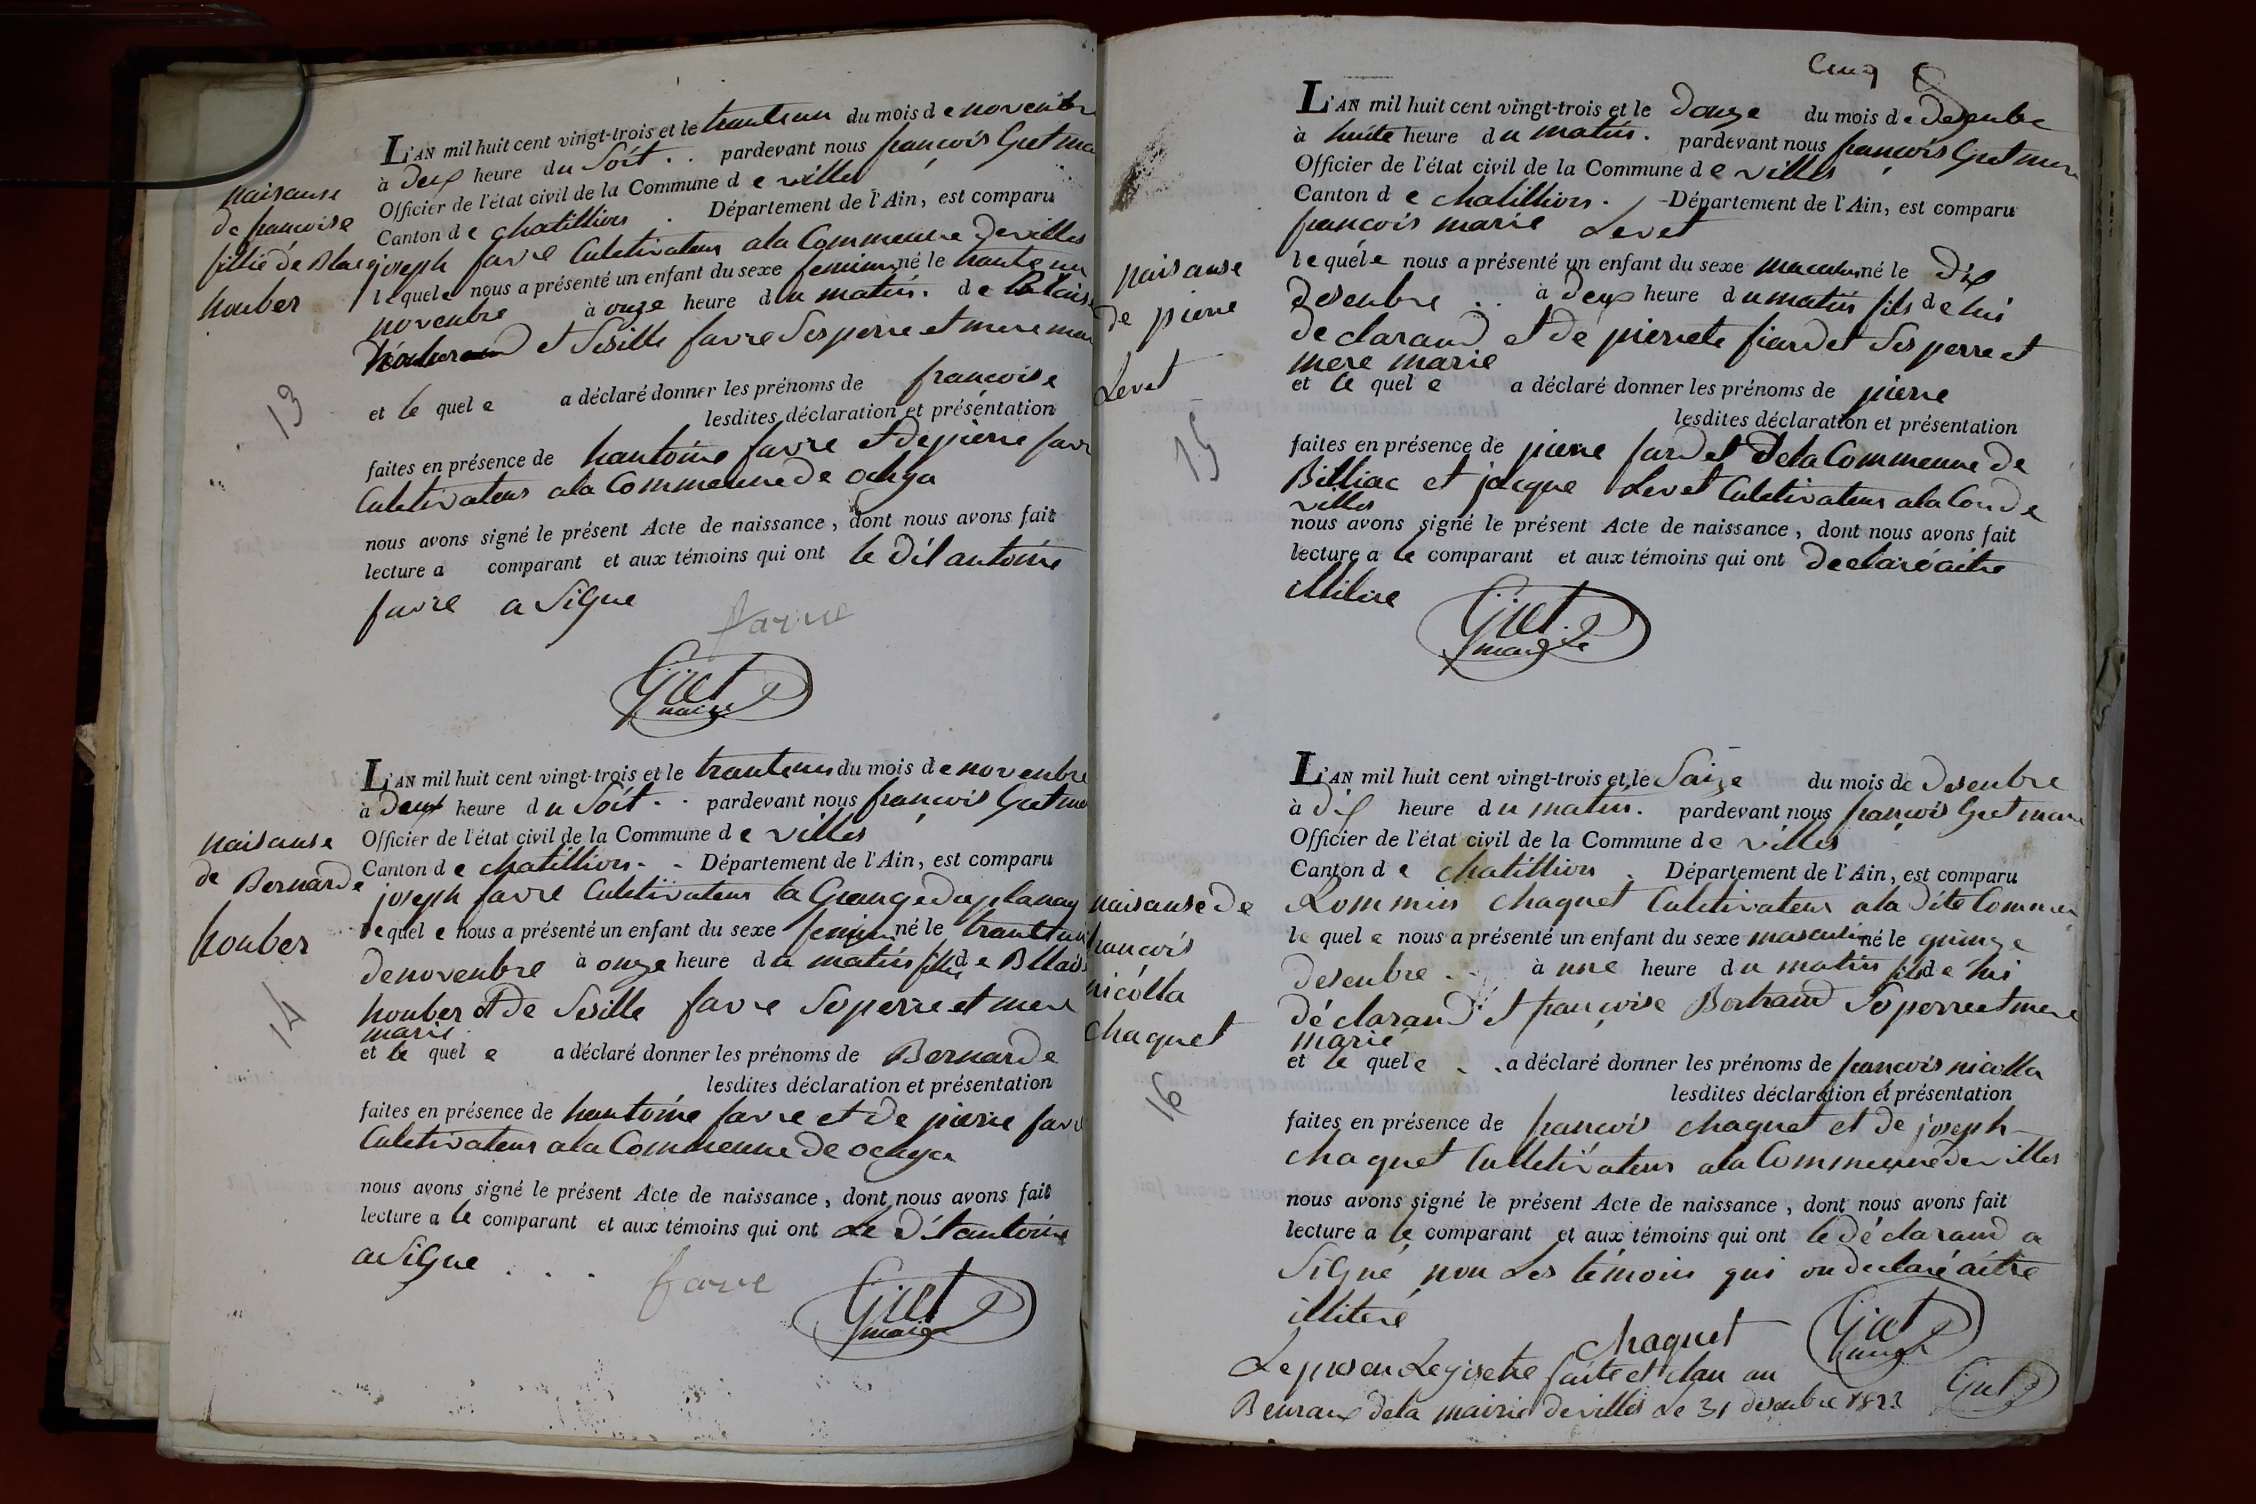 naisause
de francoise
fillié de Blaie
houber
13
L'AN mil huit cent vingt-trois et le trauteun du mois de novenbre
à deux heure du Soit . . pardevant nous francois Guet
Officier de l'état civil de la Commune de villes
Canton de chatillion . Département de l'Ain, est comparu
joseph favre Culetivateur a la Commeune de villes
lequele nous a présenté un enfant du sexe feminin né le trante un
novenbre à onze heure du matin . de
et Sesille favre Ses perre et mere
et le quel e a déclaré donner les prénoms de francoise
lesdites déclaration et présentation
faites en présence de hantoine favre et de pierre favr
Culetivateur a la Commeunne de ochya
nous avons signé le présent Acte de naissance, dont nous avons fait
lecture a comparant et aux témoins qui ont le dit antoine
favre a Signe
favre
Guet
maire
naisause
de Bernarde
houber
14
L'AN mil huit cent vingt-trois et le trauteun du mois de novenbre
à deux heure du Soit . . pardevant nous francois Guet
Officier de l'état civil de la Commune de villes
Canton de chatillion . . Département de l'Ain, est comparu
joseph favre Culetivateur la Grange du planay
lequel e nous a présenté un enfant du sexe feminin né le
de novenbre à onze heure du matin fille de Blais
houber et De Sesille favre So perre et mere
marie
et le quel e a déclaré donner les prénoms de Bernarde
lesdites déclaration et présentation
faites en présence de hantoine favre et de pierre favr
Culetivateur a la Commeunne de ochya
nous avons signé le présent Acte de naissance, dont nous avons fait
lecture a le comparant et aux témoins qui ont Le dit antoine
a Signe . . .
favre
Guet
maire
Cinq
naisause
de pierre
Levet
15
L'AN mil huit cent vingt-trois et le douze du mois de desenbre
à huite heure du matin . pardevant nous francois Guet
Officier de l'état civil de la Commune de villes
Canton de chatillion . Département de l'Ain, est comparu
francois marie Levet
lequele nous a présenté un enfant du sexe né le Dix
desenbre . . à deux heure du matin fils de lui
de clarand et de pierrete fiardet Ses perre et
mere marie
et le quel e a déclaré donner les prénoms de pierre
lesdites déclaration et présentation
faites en présence de pierre fardet De la Commeune de
Billiac et jacque Levet Culetivateur a la Con de
villes
nous avons signé le présent Acte de naissance, dont nous avons fait
lecture a le comparant et aux témoins qui ont declaré aitre
Guet
maire
naisause de
francois
nicolla
chaquet
16
L'AN mil huit cent vingt-trois et le Saize du mois de desenbre
à dix heure du matin . pardevant nous francois Guet maire
Officier de l'état civil de la Commune de villes
Canton de chatillion . Département de l'Ain, est comparu
Rommin chaquet Culetivateur a la dite
le quel e nous a présenté un enfant du sexe masculin né le quinze
desenbre . . à une heure du matin fils de lui
dé clarand et françoise Bertrand So perre et mere
marié
et le quel e . . a déclaré donner les prénoms de francois nicolla
lesdites déclaration et présentation
faites en présence de francois chaquet et de joseph
chaquet Culletivateur a la Commeunne de villes
nous avons signé le présent Acte de naissance, dont nous avons fait
lecture a le comparant et aux témoins qui ont le dé clarand a
Signé non Les témoin qui on declaré aitre
illiteré
chaquet
Guet
maire
Le presen Regisetre faite et clau au
Beuraux de la mairie de villes Le 31 desenbre 1823
Guet